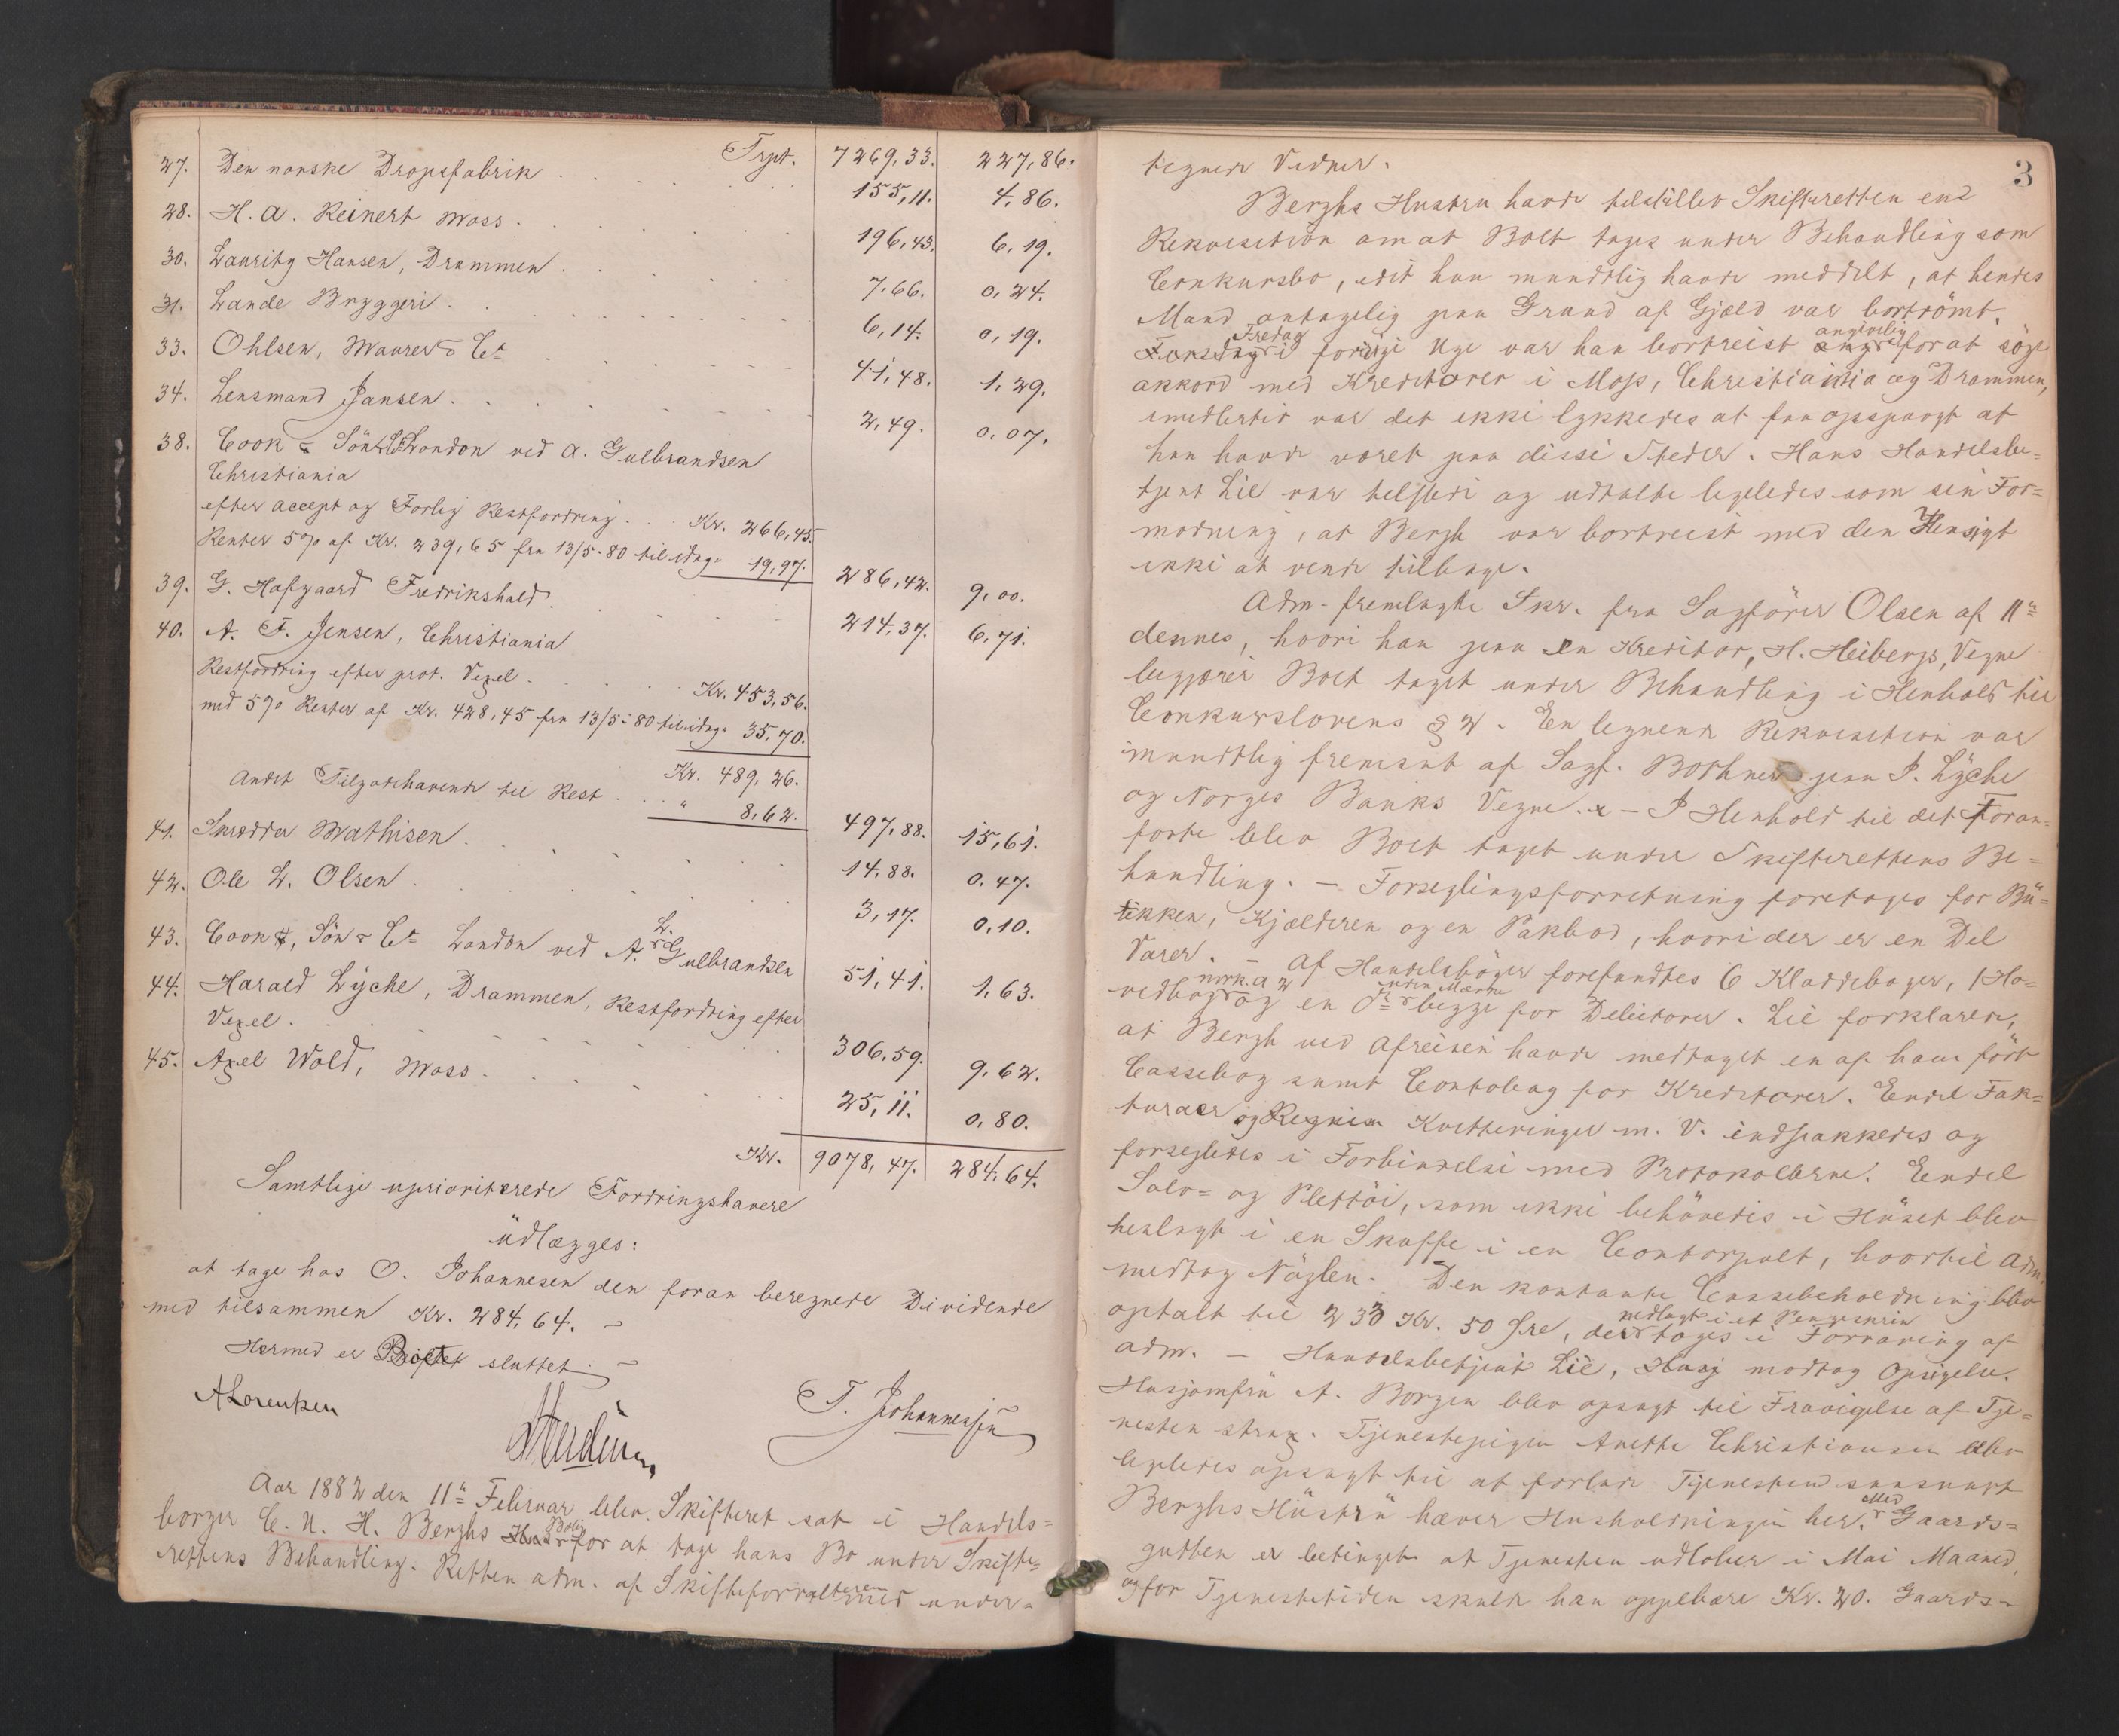 Trpt. 7269,33. 227,86.
27. Den norske Dropsfabrik . . . 155,11. 4,86.
28. H. A. Reinert Moss . . . 196,43. 6,19.
30. Lauritz Hansen, Drammen . . . 7,66. 0,24.
31. Lande Bryggeri . . . 6,14. 0,19.
33. Ohlsen, Maurer & Co . . . 41,48. 1,29.
34. Lensmand Jansen . . . 2,49. 0,07.
38. Cook & Sön & Co London ved A. Gulbrandsen
Christiania
efter accept og Forlig Restfordring . . . Kr. 266,45.
Renter 5% af Kr. 239,65 fra 13/5-80 til idag " 19,97. 286,42. 9,00.
39. G. Hafgaard Fredrikshald . . . 214,37. 6,71.
40. A. F. Jensen, Christiania
Restfordring efter prot. Vexel . . . Kr. 453,56.
med 5% Renter af Kr. 428,45 fra 13/5-80 til idag " 35,70.
Kr. 489,26.
Andet Tilgodehavende til Rest . . . " 8,62. 497,88. 15,61.
41. Skrædder Mathisen . . . 14,88. 0,47.
42. Ole L. Olsen . . . 3,17. 0,10.
43. Cook, Sön & Co London ved A. L. Gulbrandsen 51,41. 1,63.
44. Harald Lyche, Drammen, Restfordring efter
Vexel . . . 306,59. 9,62.
45. Axel Wold, Moss . . . 25,11. 0,80.
Kr. 9078,47. 284,64.
Samtlige uprioriterede Fordringshavere
udlægges:
at tage hos O. Johannesen den foran beregnede Dividende
med tilsammen Kr. 284,64. –
Hermed er Boet sluttet. –
A Lorentzen
T. Johannesen
Aar 1882 den 11te Februar blev Skifteret sat i Handels-
borger C. N. H. Berghs Bolig for at tage hans Bo under Skifte-
rettens Behandling. Retten adm. af Skifteforvalteren med under-
3
tegnede Vidner.
Berghs Hustru havde tilstillet Skifteretten en
Rekvisition om at Boet tages under Behandling som
Conkursbo, idet hun mundtlig havde meddelt, at hendes
Mand antagelig paa Grund af Gjæld var bortrömt.
Fredag i forrige Uge var han bortreist angivelig for at söge
akkord med Kreditorer i Moss, Christiania og Drammen,
imidlertid var det ikke lykkedes at faa opspurgt at
han havde været paa disse Steder. Hans Handelsbe-
tjent Lie var tilstede og udtalte ligeledes som sin For-
modning, at Bergh var bortreist med den Hensigt
ikke at vende tilbage.
Adm. fremlagde Skr. fra Sagförer Olsen af 11te
dennes, hvori han paa en Kreditor, H. Heibergs, Vegne
begjærer Boet taget under Behandling i Henhold til
Conkurslovens § 2. En lignende Rekvisition var
mundtlig fremsat af Sagf. Bothner paa J. Lyche
og Norges Banks Vegne. – I Henhold til det Foran-
förte blev Boet taget under Skifterettens Be-
handling. – Forseglingsforretning foretoges for Bu-
tikken, Kjælderen og en Pakbod, hvori der er en Del
Varer. – Af Handelsböger forefandtes 6 Kladdeboger, 1 Ho-
vedbog mrk. a 2 og en do uden Mærke begge for Debitorer. Lie forklarede,
at Bergh ved Afreisen havde medtaget en af ham fört
Cassebog samt Contobog for Kreditorer. Endel Fak-
turaer og Regnin Kvitteringer m. V. indpakkedes og
forsegledes i Forbindelse med Protokollerne. Endel
Solv- og Plettöi, som ikke behövedes i Huset blev
henlagt i en Skuffe i en Contorpult, hvortil Adm.
medtog Nöglen. Den kontante Cassebeholdning blev
optalt til 233 Kr. 50 Öre, der nedlagt i et Pengeskrin toges i Forvaring af
Adm. – Handelsbetjent Lie, modtog Opsigelse.
Husjomfru A. Borgen blev opsagt til Fravigelse af Tje-
nesten strax. Tjenestepigen Anette Christiansen blev
ligeledes opsagt til at forlade Tjenesten saasnart
Berghs Hustru hæver Husholdningen her. Med Gaards-
gutten er betinget at Tjenesten udlöber i Mai Maaned,
og for Tjenestetiden skulde han oppebære Kr. 20. Gaards-